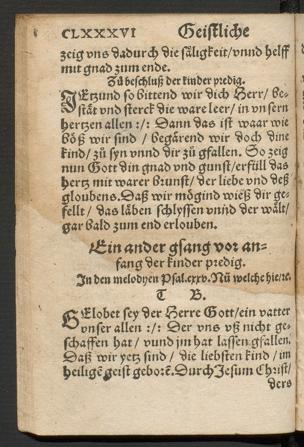 CLXXXVI Geistliche
zeig vns dadurch die säligkeit/vnnd helff
mit gnad zum ende.
Zů beschluß der kinder predig.
JEtzund so bittend wir dich Herr/ be-
stät vnd sterck die ware leer/ in vnsern
hertzen allen :/: Dann das ist waar wie
böß wir sind / begärend wir doch dine
kind/ zů syn vnnd dir zů gfallen. So zeig
nun Gott din gnad vnd gunst/erfüll das
hertz mit warer brunst/ der liebe vnd deß
gloubens. Daß wir mögind wieß dir ge-
fellt/ das läben schlyssen vnnd der wält/
gar bald zum end erlouben.
Ein ander gsang vor an-
fang der kinder predig.
In den melodyen Psal.cxxv. Nů welche hie/ꝛc.
T B.
GElobet sey der Herre Gott/ein vatter
vnser allen :/: Der vns vß nicht ge-
schaffen hat / vund jm hat lassen gfallen.
Daß wir yetz sind / die liebsten kind / im
heiligē geist geborē. Durch Jesum Christ/
ders